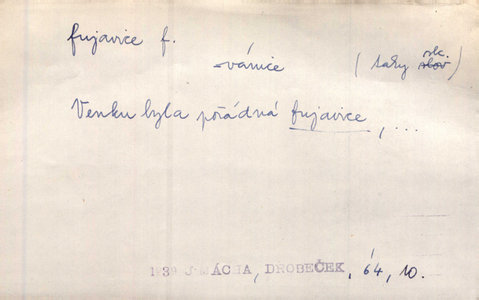 fujavice f.
vánice (taky slk. slov)
Venku byla pořádná fujavice, ...
J. MÁCHA, DROBEČEK, 64, 10.